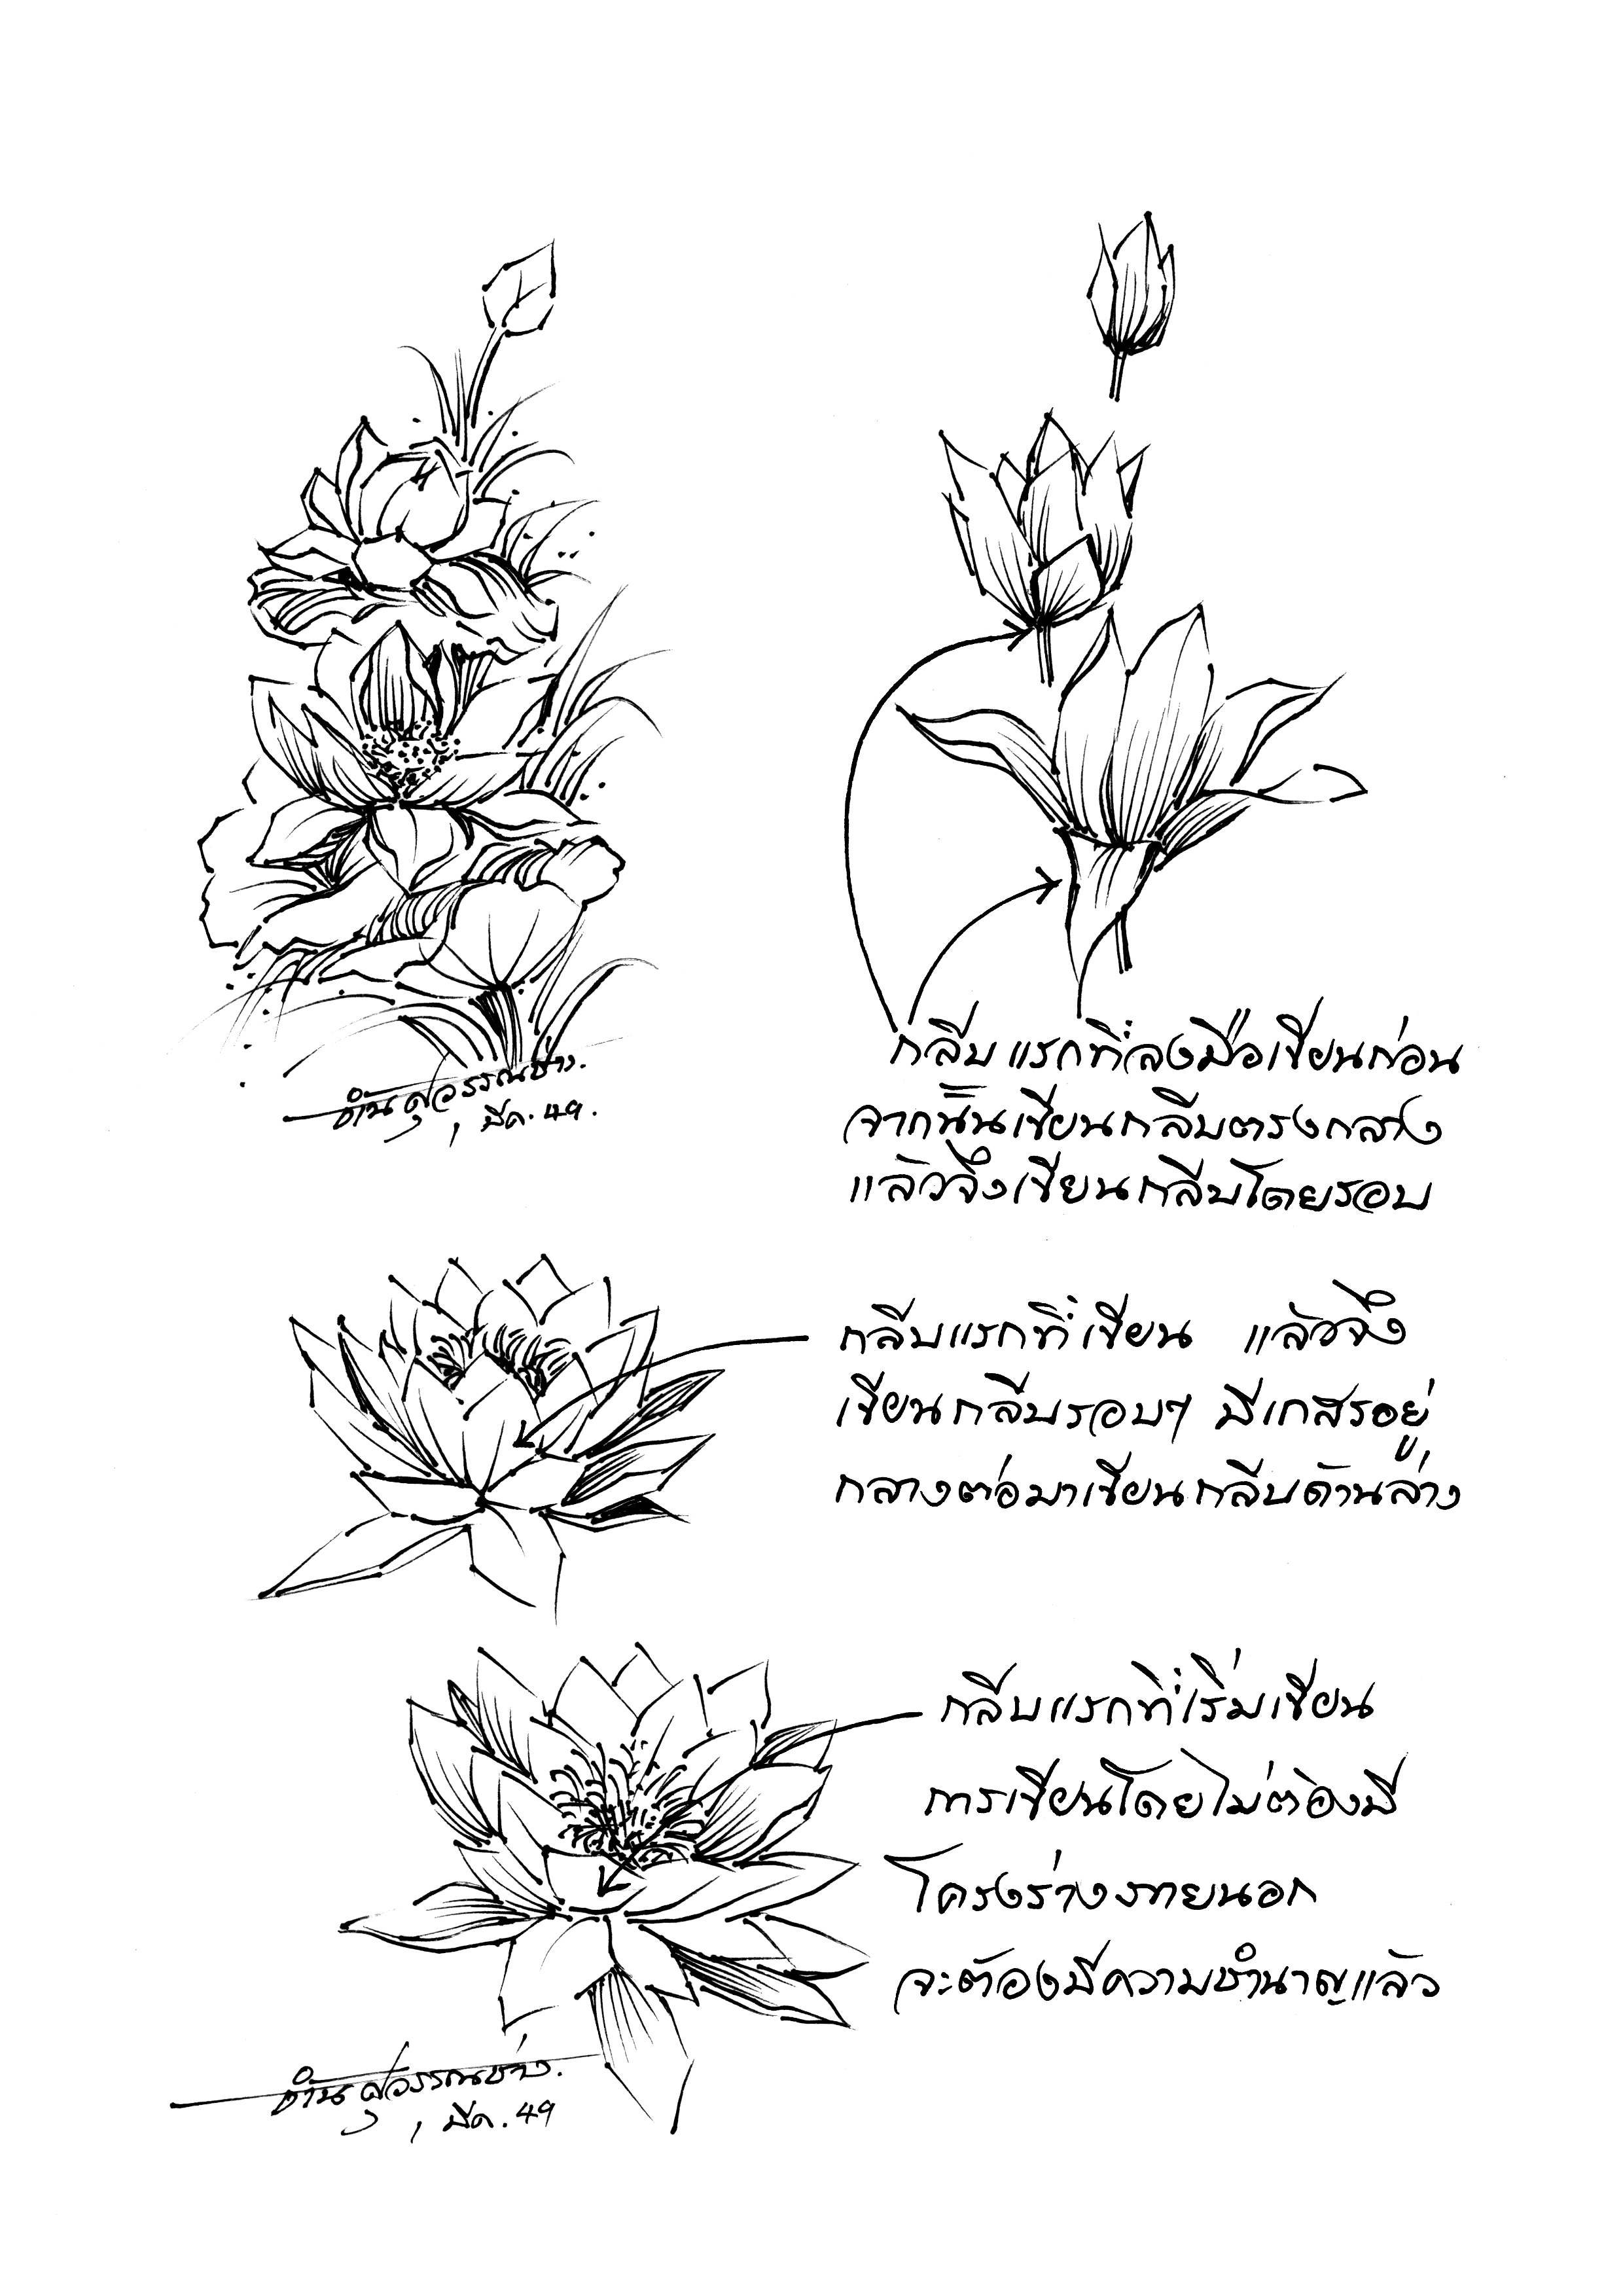 กลีบแรกที่ลงมือเขียนก่อน
จากนั้นเขียนกลีบตรงกลาง
แล้วจึงเขียนกลีบโดยรอบ
สุวรรณช่าง.
, มีค. 49.
กลีบแรกที่เขียน แล้วจึง
เขียนกลีบรอบๆ มีเกสรอยู่
กลางต่อมาเขียนกลีบด้านล่าง
กลีบแรกที่เริ่มเขียน
การเขียนโดยไม่ต้องมี
โครงร่างภายนอก
จะต้องมีความชำนาญแล้ว
สุวรรณช่าง.
, มีค. 49